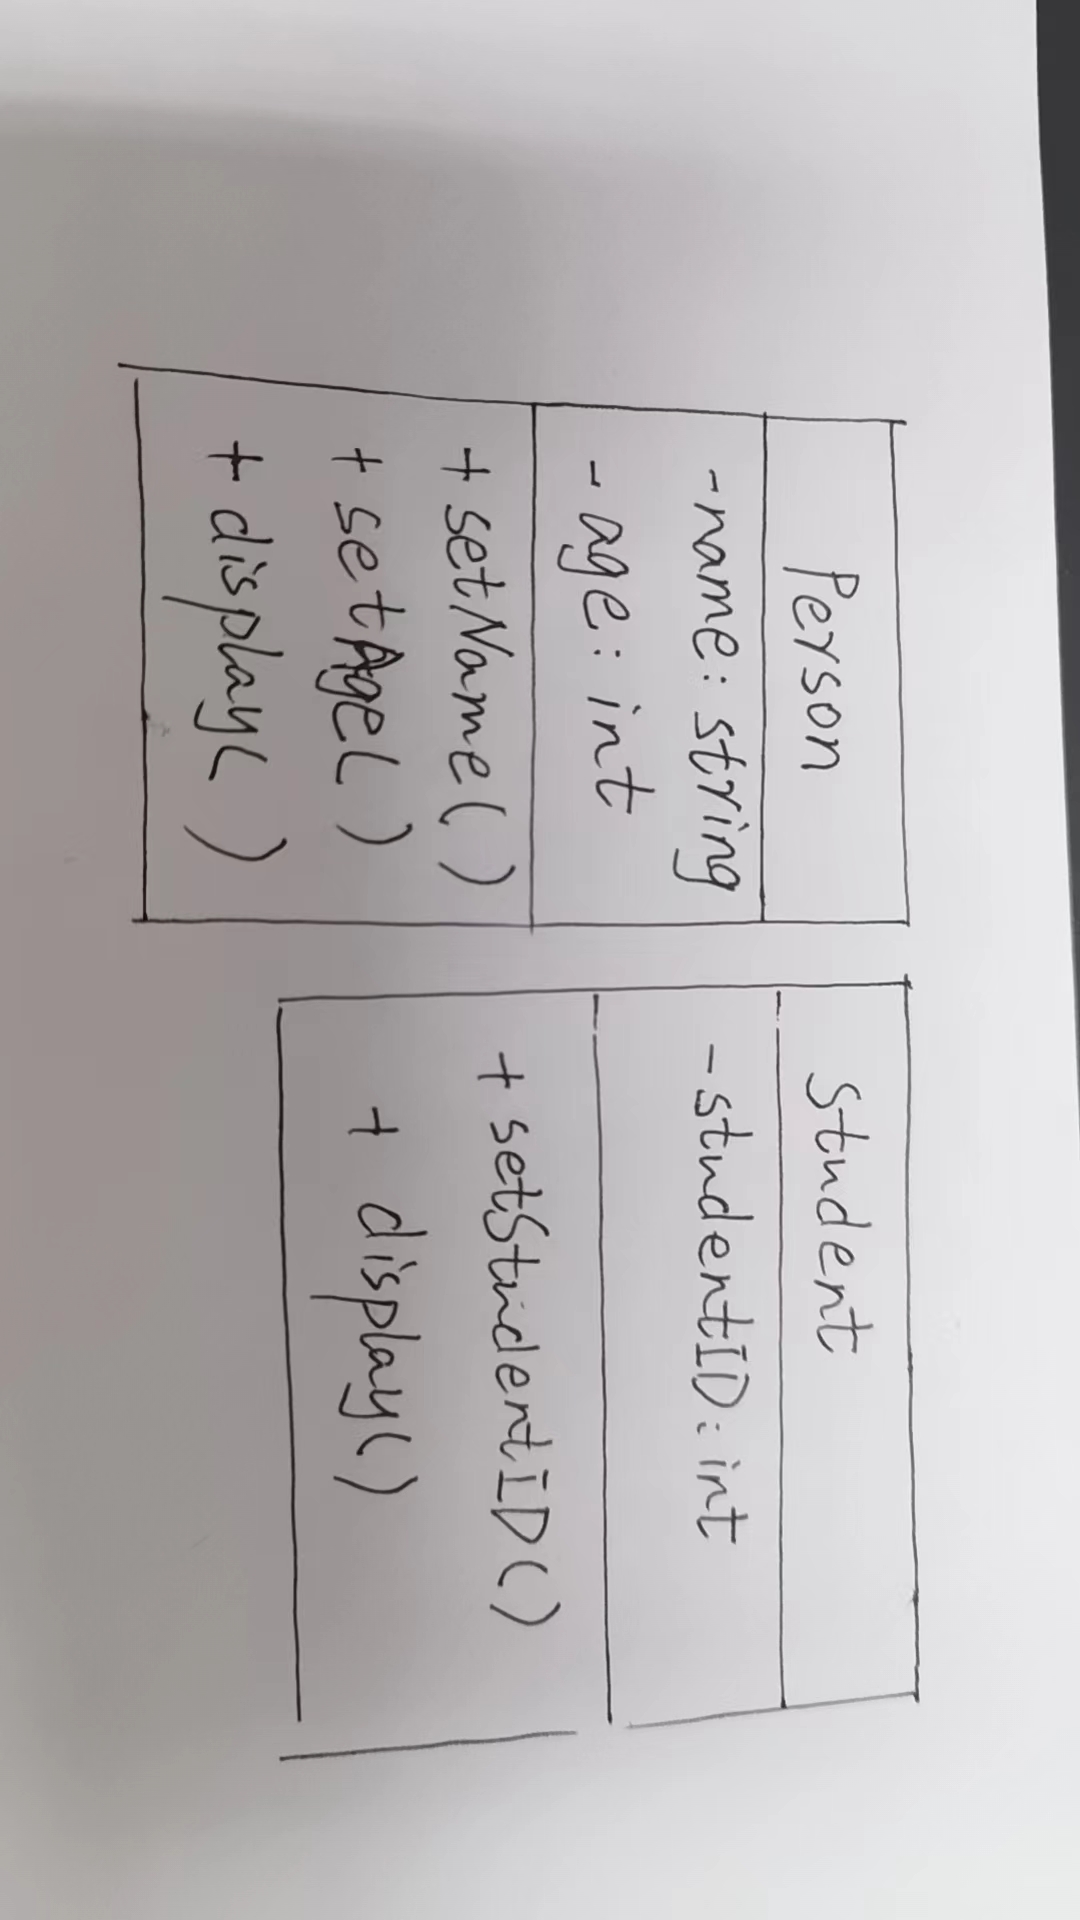 Person
-name: string
- age: int
+ setName()
+ setAge()
+ display()
Student
-studentID: int
+ setStudentID()
+ display()